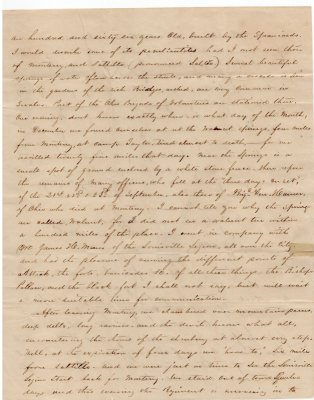 one hundred and sixty six years Old, built by the Spaniards.
I would describe some of its peculiarities had I not seen those
of Monterey, and Saltillo (pronounced Salteo) Several beautiful
springs of water flow across the streets, and many a cascade is seen
in the gardens of the rich. Bridges, arched, are very common in
Part of the Ohio Brigade of Volunteers are stationed there.
One evening, don't know exactly when, or what day of the Month,
in December we found ourselves at at the Walnut Springs, four miles
from Monterey, at Camp Taylor, tired almost to death, for we
travelled twenty five miles that day. Near the Springs is a
small spot of ground enclosed by a white stone fence. There repose
the remains of many officers, who fell at the "three days on set,"
of the 21st 22d & 23d of September. also those of Brig. Gen.
of Ohio who died at Monterey. I cannot tell you why the springs
are called Walnut, for I did not see a walnut tree within
a hundred miles of the place. I went in company with
James H. of the Louisville Legion, all over the City
and had the pleasure of viewing the different points of
Attack, the forts, barricades &c. Of all these things, the Bishop's
Palace, and the Black fort I shall not say, but will wait
a more suitable time for communication.
After leaving Monterey, we clambered over mountain passes,
deep dells, long ravines and the devil knows what all,
encountering the bones of the at almost every step,
Well, at the expiration of four days we "hove to," six miles
from Saltillo. And we were just in time to see the Louisville
Legion start back for Monterey. We staid out of town twelve
days and this evening the Regiment is moving in to